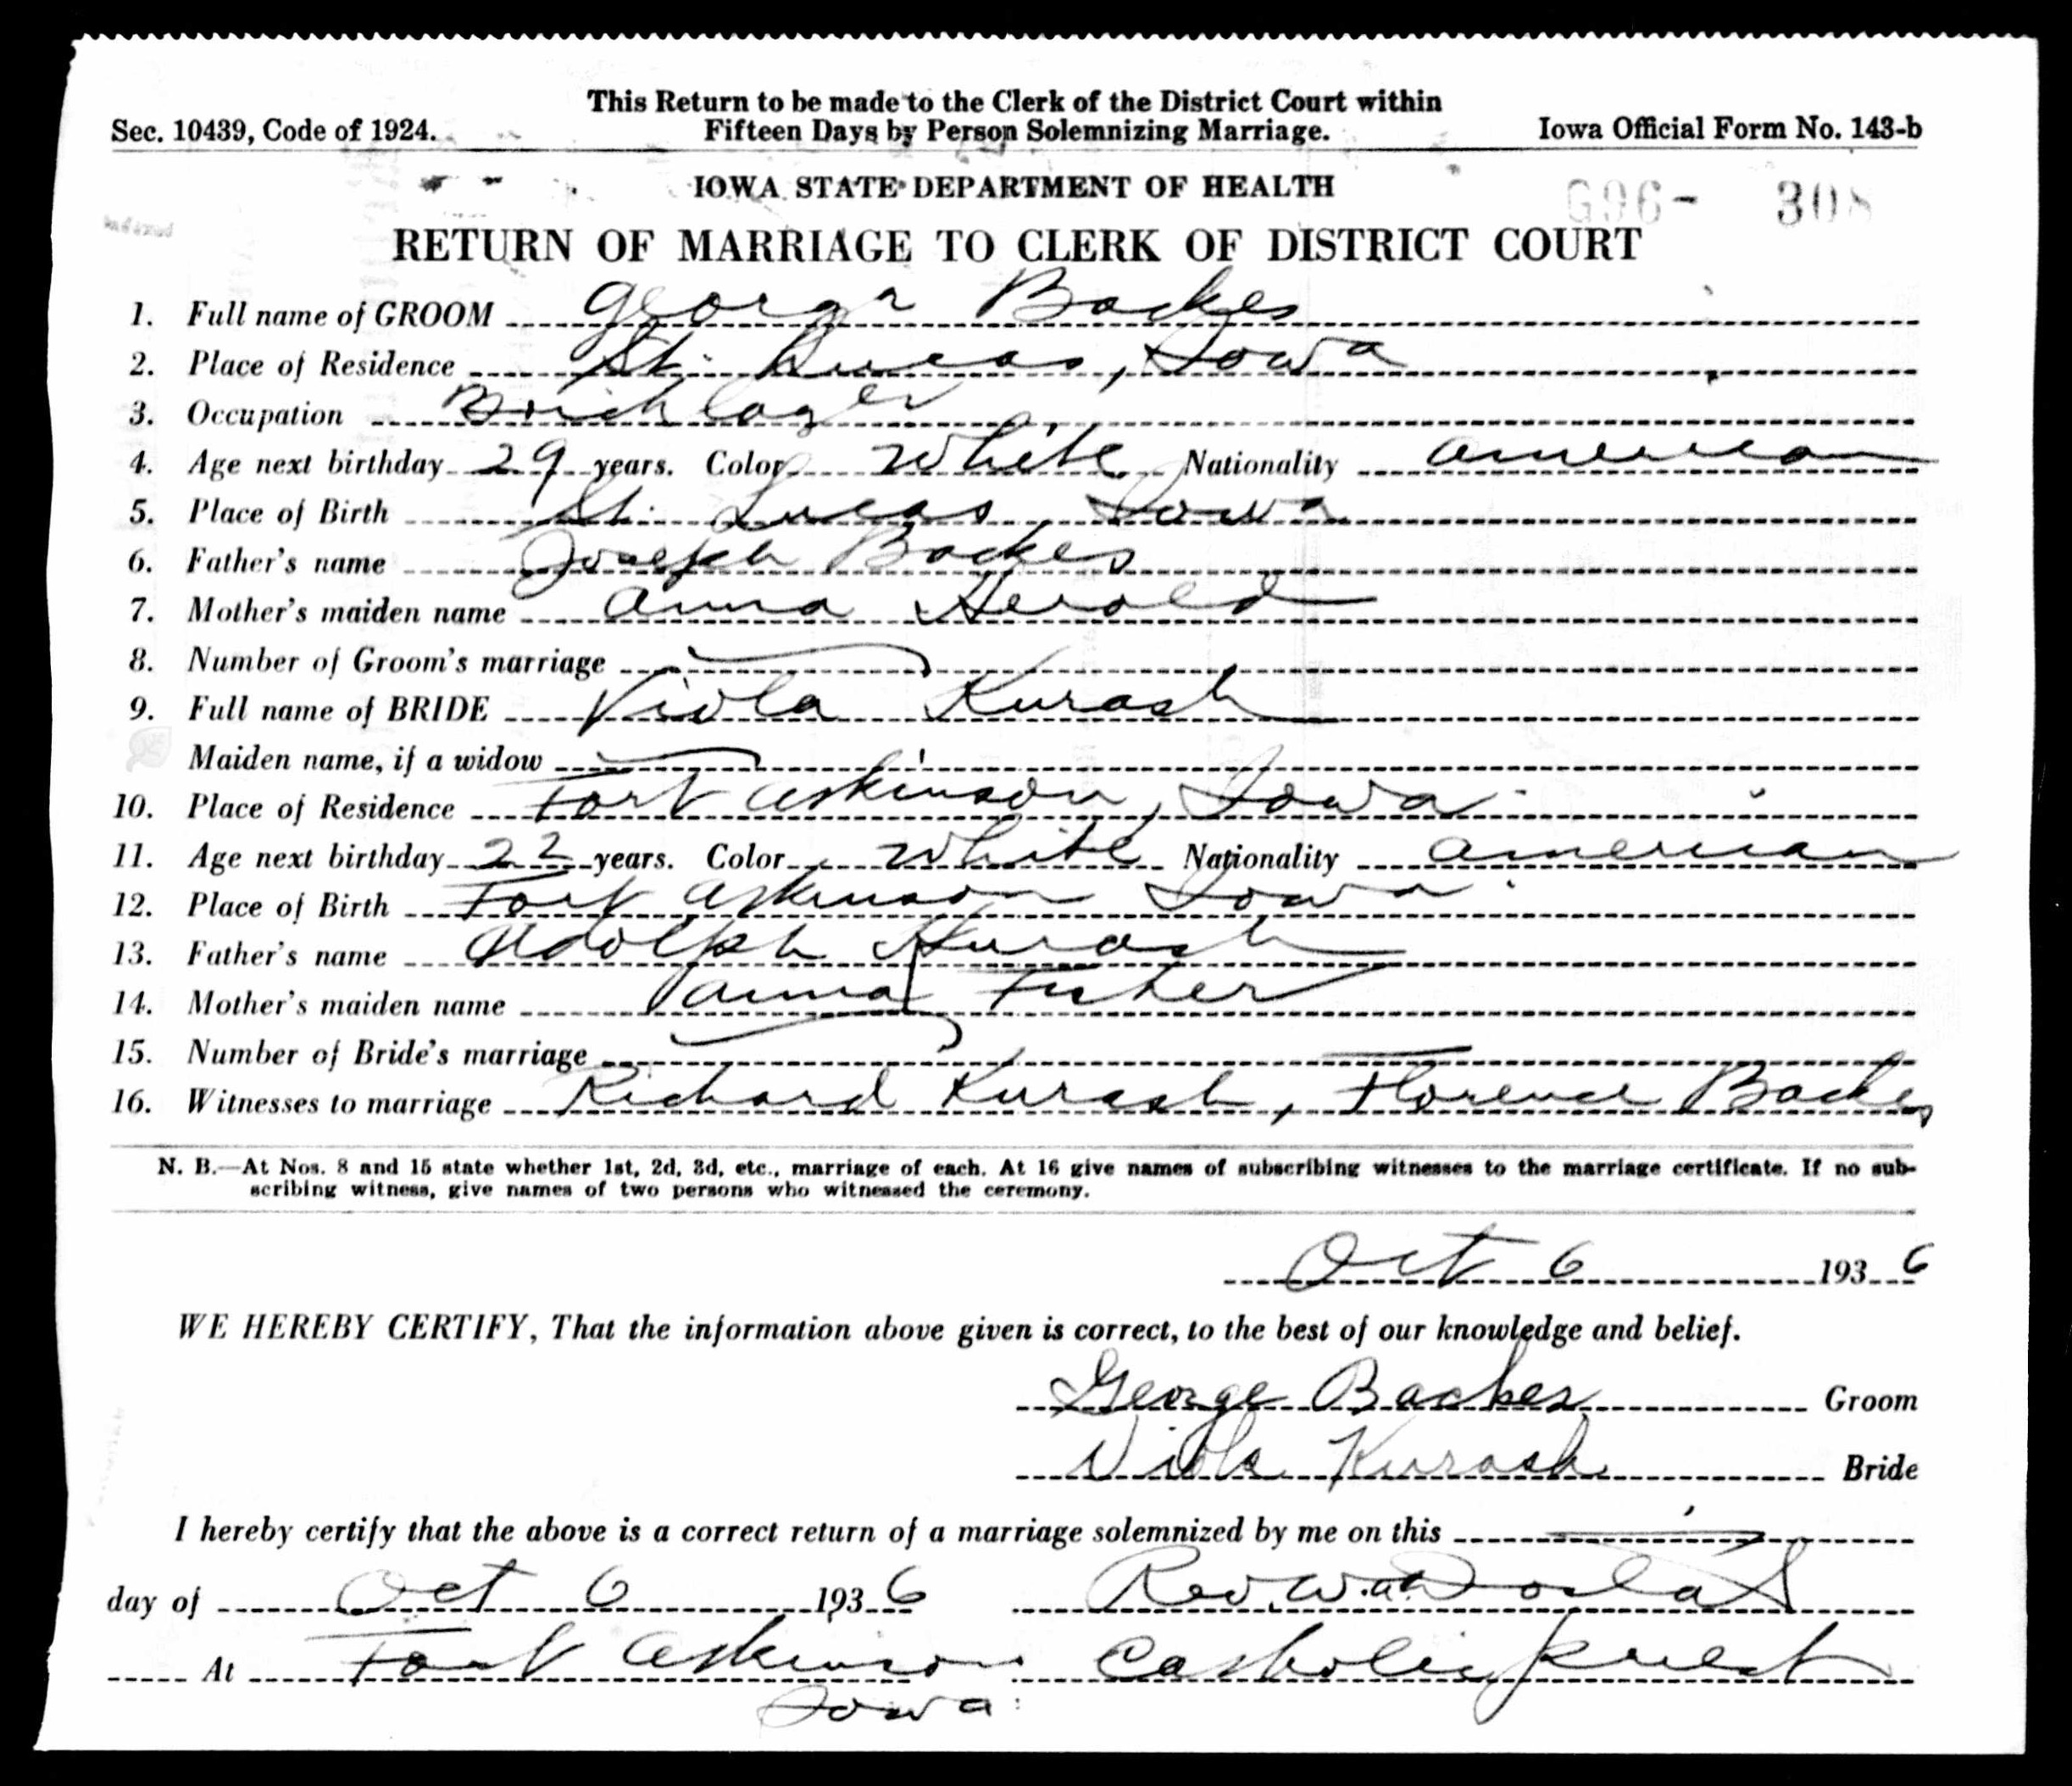 This Return to be made to the Clerk of the District Court within
Sec. 10439, Code of 1924. Fifteen Days by Person Solemnizing Marriage. Iowa Official Form No. 143-b
IOWA STATE DEPARTMENT OF HEALTH
G96- 308
RETURN OF MARRIAGE TO CLERK OF DISTRICT COURT
1. Full name of GROOM George Backes
2. Place of Residence St. Lucas, Iowa
3. Occupation Bricklayer
4. Age next birthday 29 years. Color White Nationality American
5. Place of Birth St. Lucas, Iowa
6. Father's name Joseph Backes
7. Mother's maiden name Anna Herold
8. Number of Groom's marriage
9. Full name of BRIDE Viola Kurash
Maiden name, if a widow
10. Place of Residence Fort Atkinson, Iowa
11. Age next birthday 22 years. Color White Nationality American
12. Place of Birth Fort Atkinson Iowa
13. Father's name Adolph Kurash
14. Mother's maiden name Anna Fisher
15. Number of Bride's marriage
16. Witnesses to marriage Richard Kurash, Florence Backes
N. B.—At Nos. 8 and 15 state whether 1st, 2d, 3d, etc., marriage of each. At 16 give names of subscribing witnesses to the marriage certificate. If no sub-
scribing witness, give names of two persons who witnessed the ceremony.
Oct 6 1936
WE HEREBY CERTIFY, That the information above given is correct, to the best of our knowledge and belief.
George Backes Groom
Viola Kurash Bride
I hereby certify that the above is a correct return of a marriage solemnized by me on this
day of Oct 6 1936 Rev. W. A.
At Fort Atkinson Catholic priest
Iowa